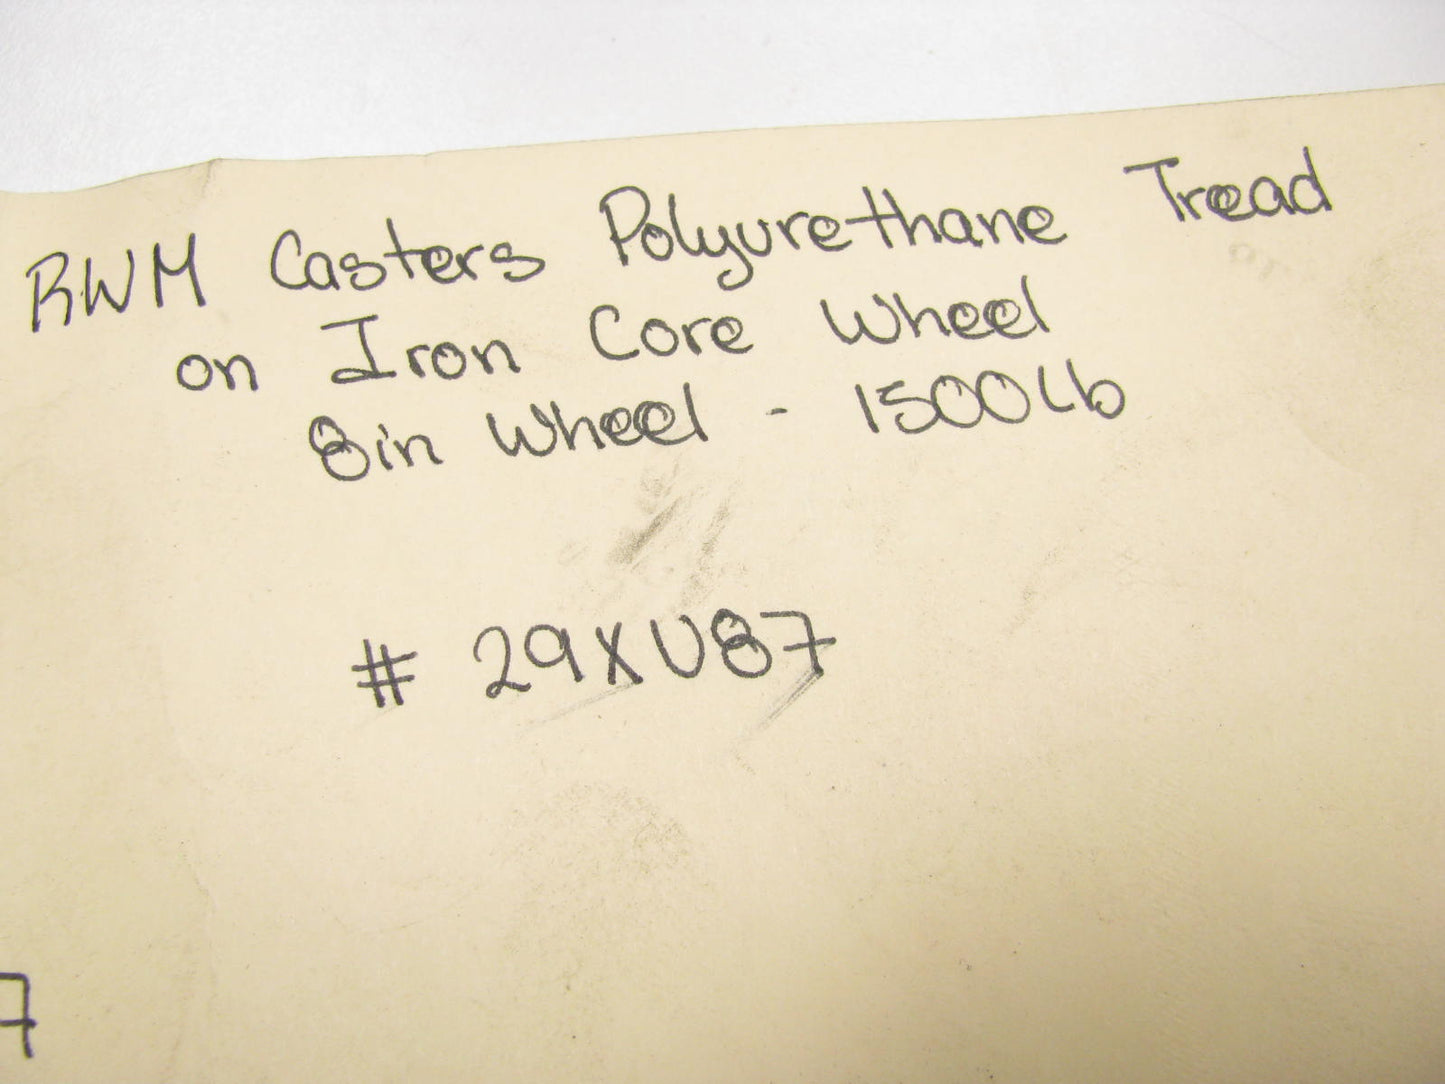 RWM Casters Polyurethane Tread
on Iron Core Wheel
8in Wheel - 1500Lb
# 29XU87
7